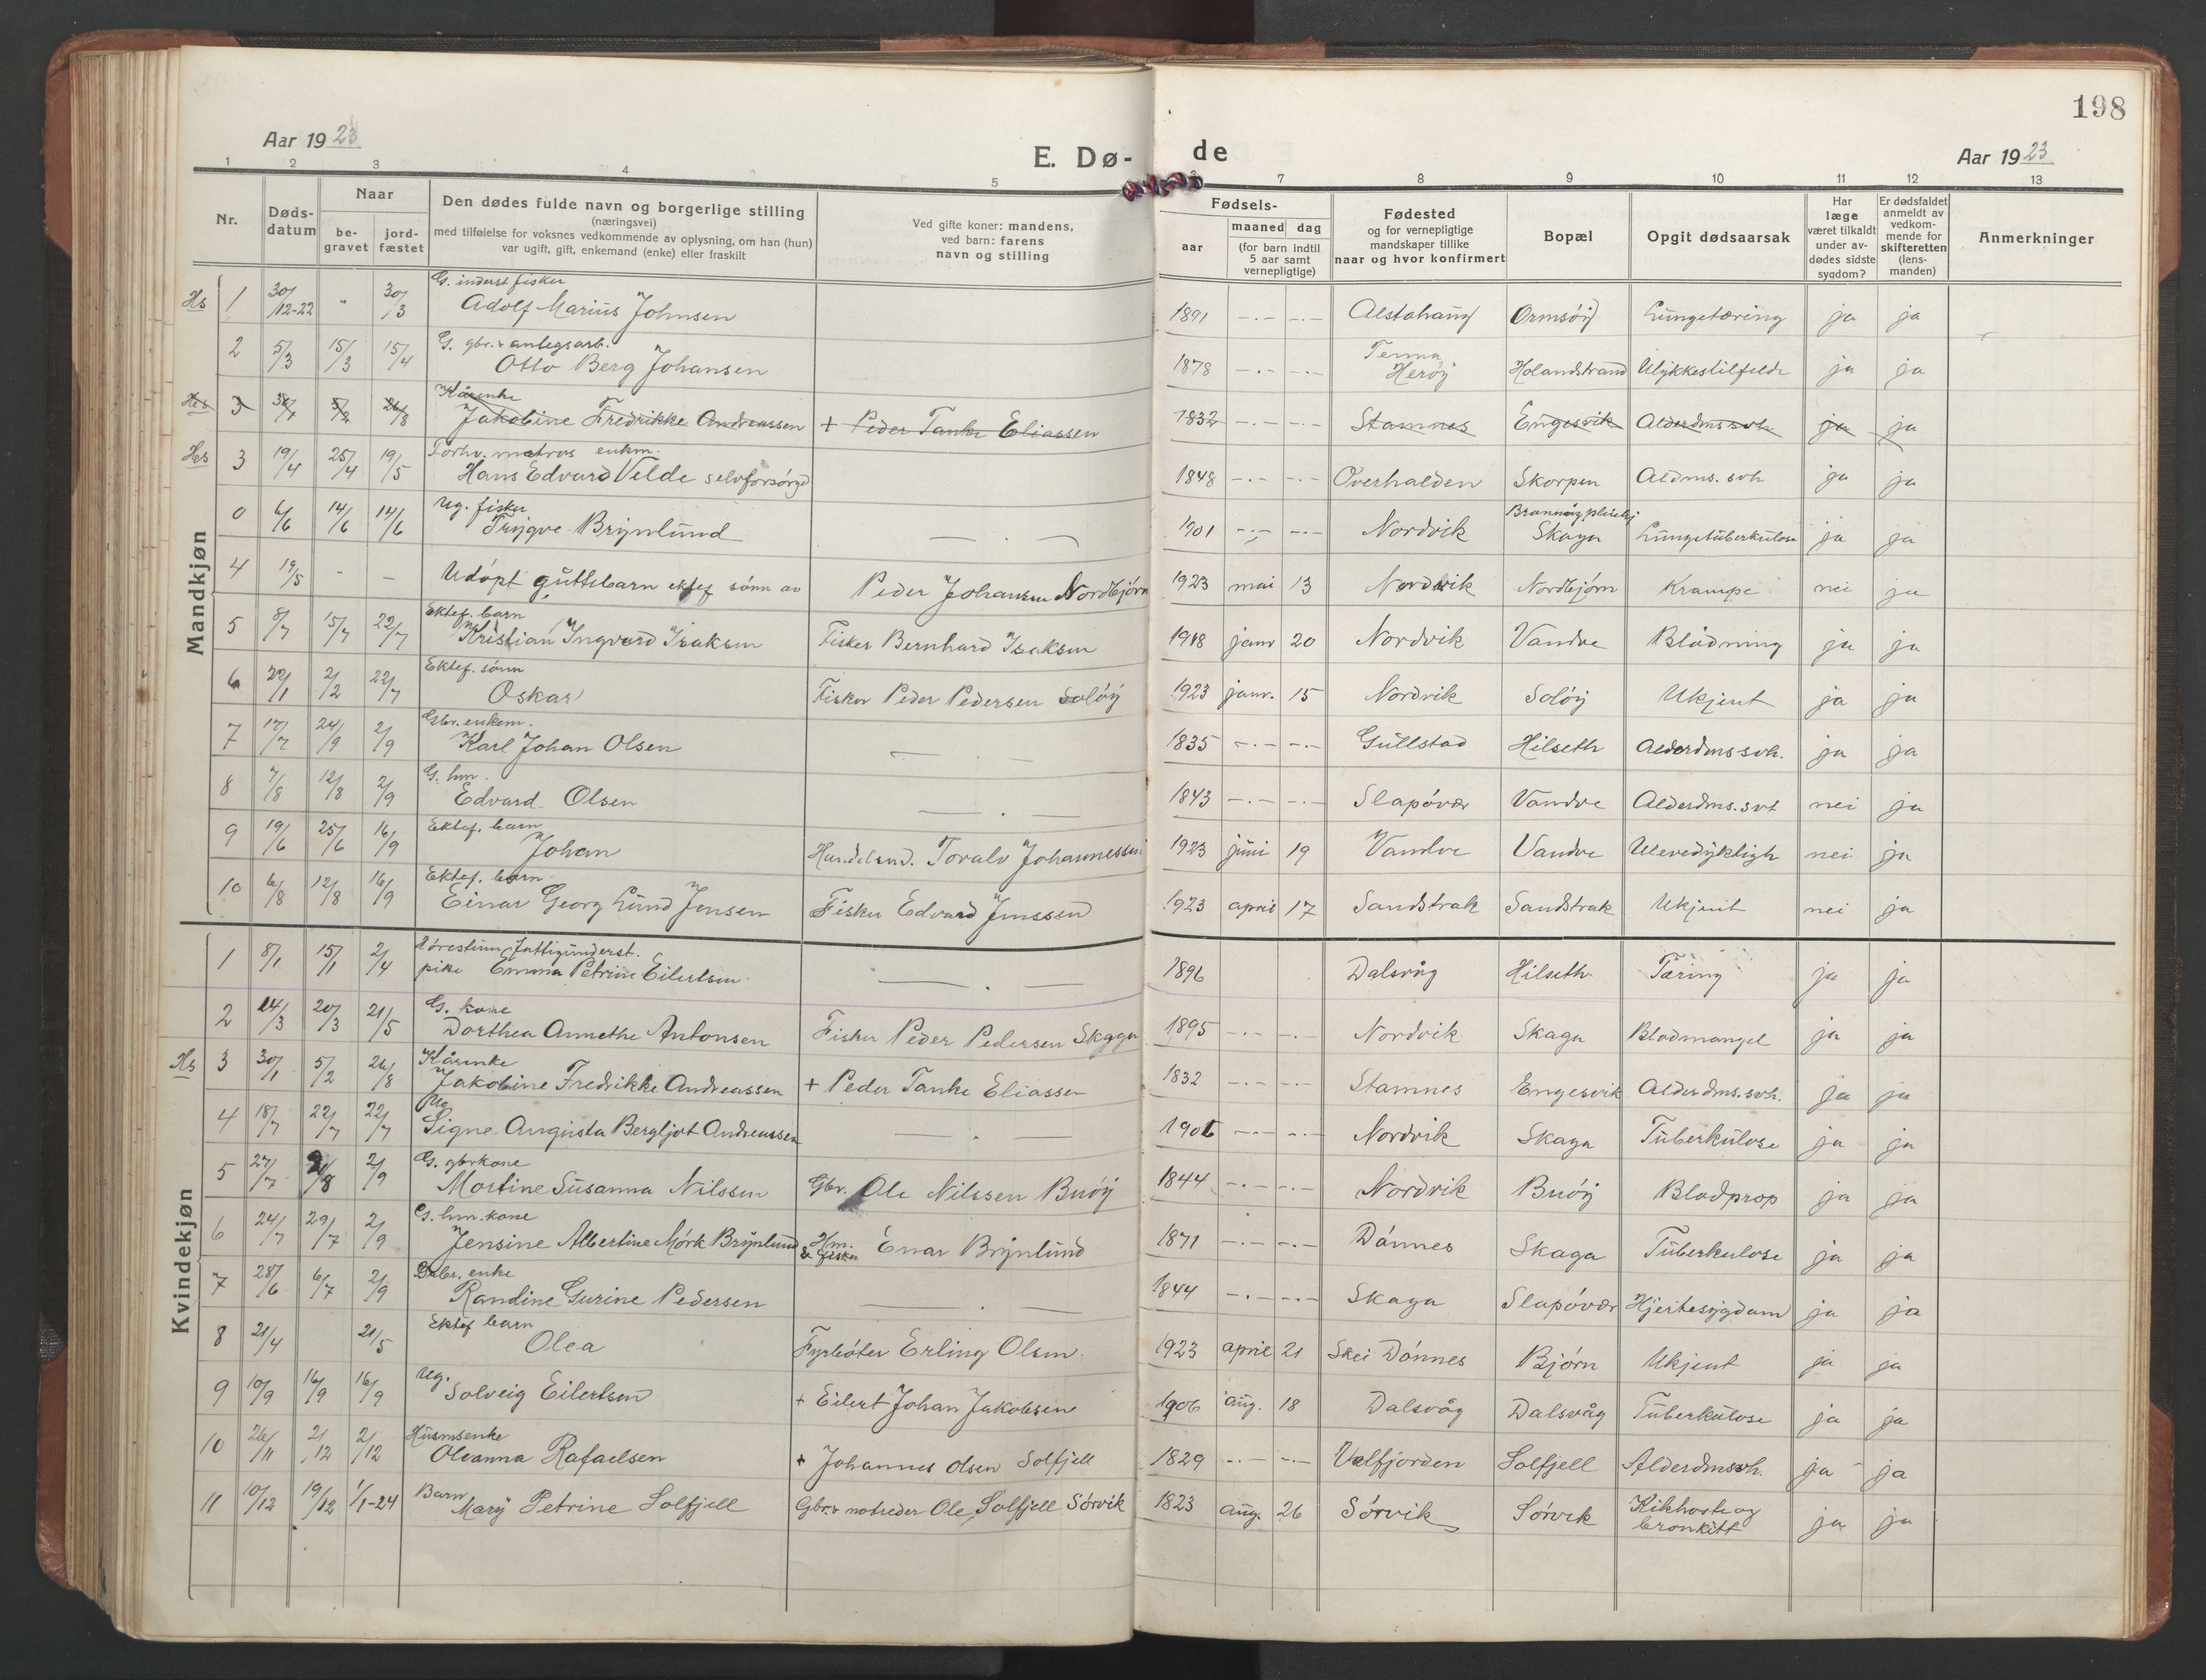 198
Aar 1923
E. Dø-de
Aar 1923
1 2 3 4 5 6 7 8 9 10 11 12 13
Nr.
Døds-datum
Naar
be-gravet
jord-fæstet
Den dødes fulde navn og borgerlige stilling
(næringsvei)
med tilføielse for voksnes vedkommende av oplysning, om han (hun)
var ugift, gift, enkemand (enke) eller fraskilt
Ved gifte koner: mandens,
ved barn: farens
navn og stilling
Fødsels-
aar
maaned dag
(for barn indtil
5 aar samt
vernepligtige)
Fødested
og for vernepligtige
mandskaper tillike
naar og hvor konfirmert
Bopæl
Opgit dødsaarsak
Har
læge
været tilkaldt
under av-
dødes sidste
sygdom?
Er dødsfaldet
anmeldt av
vedkom-
mende for
skifteretten
(lens-
manden)
Anmerkninger
Mandkjøn
G. inderst fisker
Hs 1 30/12-22 " 30/3 Adolf Marius Johnsen 1891 -.- -.- Alstahaug Ormsøy Lungetæring ja ja
G. gbr. & anlegsarb.
2 5/3 15/3 15/4 Otto Berg Johansen 1878 -.- -.- Tenna Herøy Holandstrand Ulykkestilfelde ja ja
Kårenke
Hs 3 30/1 5/2 26/8 Jakobine Fredrikke Andreassen + Peder Tanke Eliassen 1832 -.- -.- Stamnes Engesvik Alderdmssvh ja ja
Forhv. matros enkm.
Hs 3 19/4 25/4 19/5 Hans Edvard Velde selvforsørgd 1848 -.- -.- Overhalden Skorpen Aldms. svh ja ja
Ug. fisker
0 6/6 14/6 14/6 Trygve Brynlund — . — 1901 -.- -.- Nordvik Brønnøy pleiehj Skaga Lungetuberkulose ja ja
4 19/5 - - Udøpt guttebarn ektef sønn av Peder Johansen Nordbjørn 1923 mai 13 Nordvik Nordbjørn Krampe nei ja
Ektef. barn
5 8/7 15/7 22/7 Kristian Ingvard Isaksen Fisker Bernhard Isaksen 1918 janr 20 Nordvik Vandve Blødning ja ja
Ektef. sønn
6 22/1 2/2 22/7 Oskar Fisker Peder Pedersen Soløy 1923 janr. 15 Nordvik Soløy Ukjent ja ja
Gbr. enkem.
7 17/7 24/9 2/9 Karl Johan Olsen — . — 1835 -.- -.- Gullstad Hilseth Alderdmssvh. ja ja
G. hm.
8 7/8 12/8 2/9 Edvard Olsen — . — 1843 -.- -.- Slapøvær Vandve Alderdms.svh nei ja
Ektef. barn
9 19/6 25/6 16/9 Johan Handelsmd. Toralv Johannessen 1923 juni 19 Vandve Vandve Ulevedyktigh nei ja
Ektef. barn
10 6/8 12/8 16/9 Einar Georg Lund Jensen Fisker Edvard Jenssen 1923 april 17 Sandstrak Sandstrak Ukjent nei ja
Kvindekjøn
1 8/1 15/1 2/4 pike Emma Petrine Eilertsen — . — 1896 Dalsvåg Hilseth Tæring ja ja
G. kone
2 14/3 20/3 21/5 Dorthea Annethe Antonsen Fisker Peder Pedersen Skaga 1895 -.- -.- Nordvik Skaga Blodmangel ja ja
Kårenke
Hs 3 30/1 5/2 26/8 Jakobine Fredrikke Andreassen + Peder Tanke Eliassen 1832 -.- -.- Stamnes Engesvik Alderdms.svh. ja ja
Ug
4 18/7 22/7 22/7 Signe Augusta Bergljot Andreassen — . — 1905 -.- -.- Nordvik Skaga Tuberkulose ja ja
G. gbrkone
5 27/7 2/8 2/9 Martine Susanna Nilssen Gbr. Ole Nilssen Buøy 1844 -.- -.- Nordvik Buøy Blodprop ja ja
G. hm. kone
6 24/7 29/7 2/9 Jensine Albertine Mørk Brynlund Hm. & fisker Enar Brynlund 1871 -.- -.- Dønnes Skaga Tuberkulose ja ja
Gbr. enke
7 28/6 6/7 2/9 Randine Gurine Pedersen — . — 1844 -.- -.- Skaga Slapøvær Hjertesygdam ja ja
Ektef barn
8 21/4 21/5 Olea Fyrbøter Erling Olsen. 1923 april 21 Skei Dønnes Bjørn Ukjent ja ja
Ug.
9 10/9 16/9 16/9 Solveig Eilertsen + Eilert Johan Jakobsen 1906 aug. 18 Dalsvåg Dalsvåg Tuberkulose ja ja
Husmsenke
10 26/11 2/12 2/12 Oleanna Rafaelsen + Johannes Olsen Solfjell 1829 -.- -.- Velfjorden Solfjell Alderdmssvh. ja ja
Barn
11 10/12 19/12 1/1-24 Mary Petrine Solfjell Gbr. & notreder Ole Solfjell Sørvik 1823 aug. 26 Sørvik Sørvik Kikhoste og bronkitt ja ja